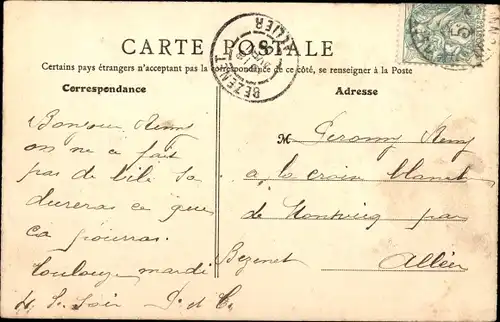 CARTE POSTALE
Certains pays étrangers n'acceptant pas la correspondance de ce côté, se renseigner à la Poste
Correspondance
Adresse
BEZENET
ALLIER
5
Bonjour Remy
on ne ce fait
pas de bile sa
durera ce que
ca pourras.
Toulouze mardi
4 h Soir
M Remy
a la croix blanche
de Montvicq par
Bezenet
Allier